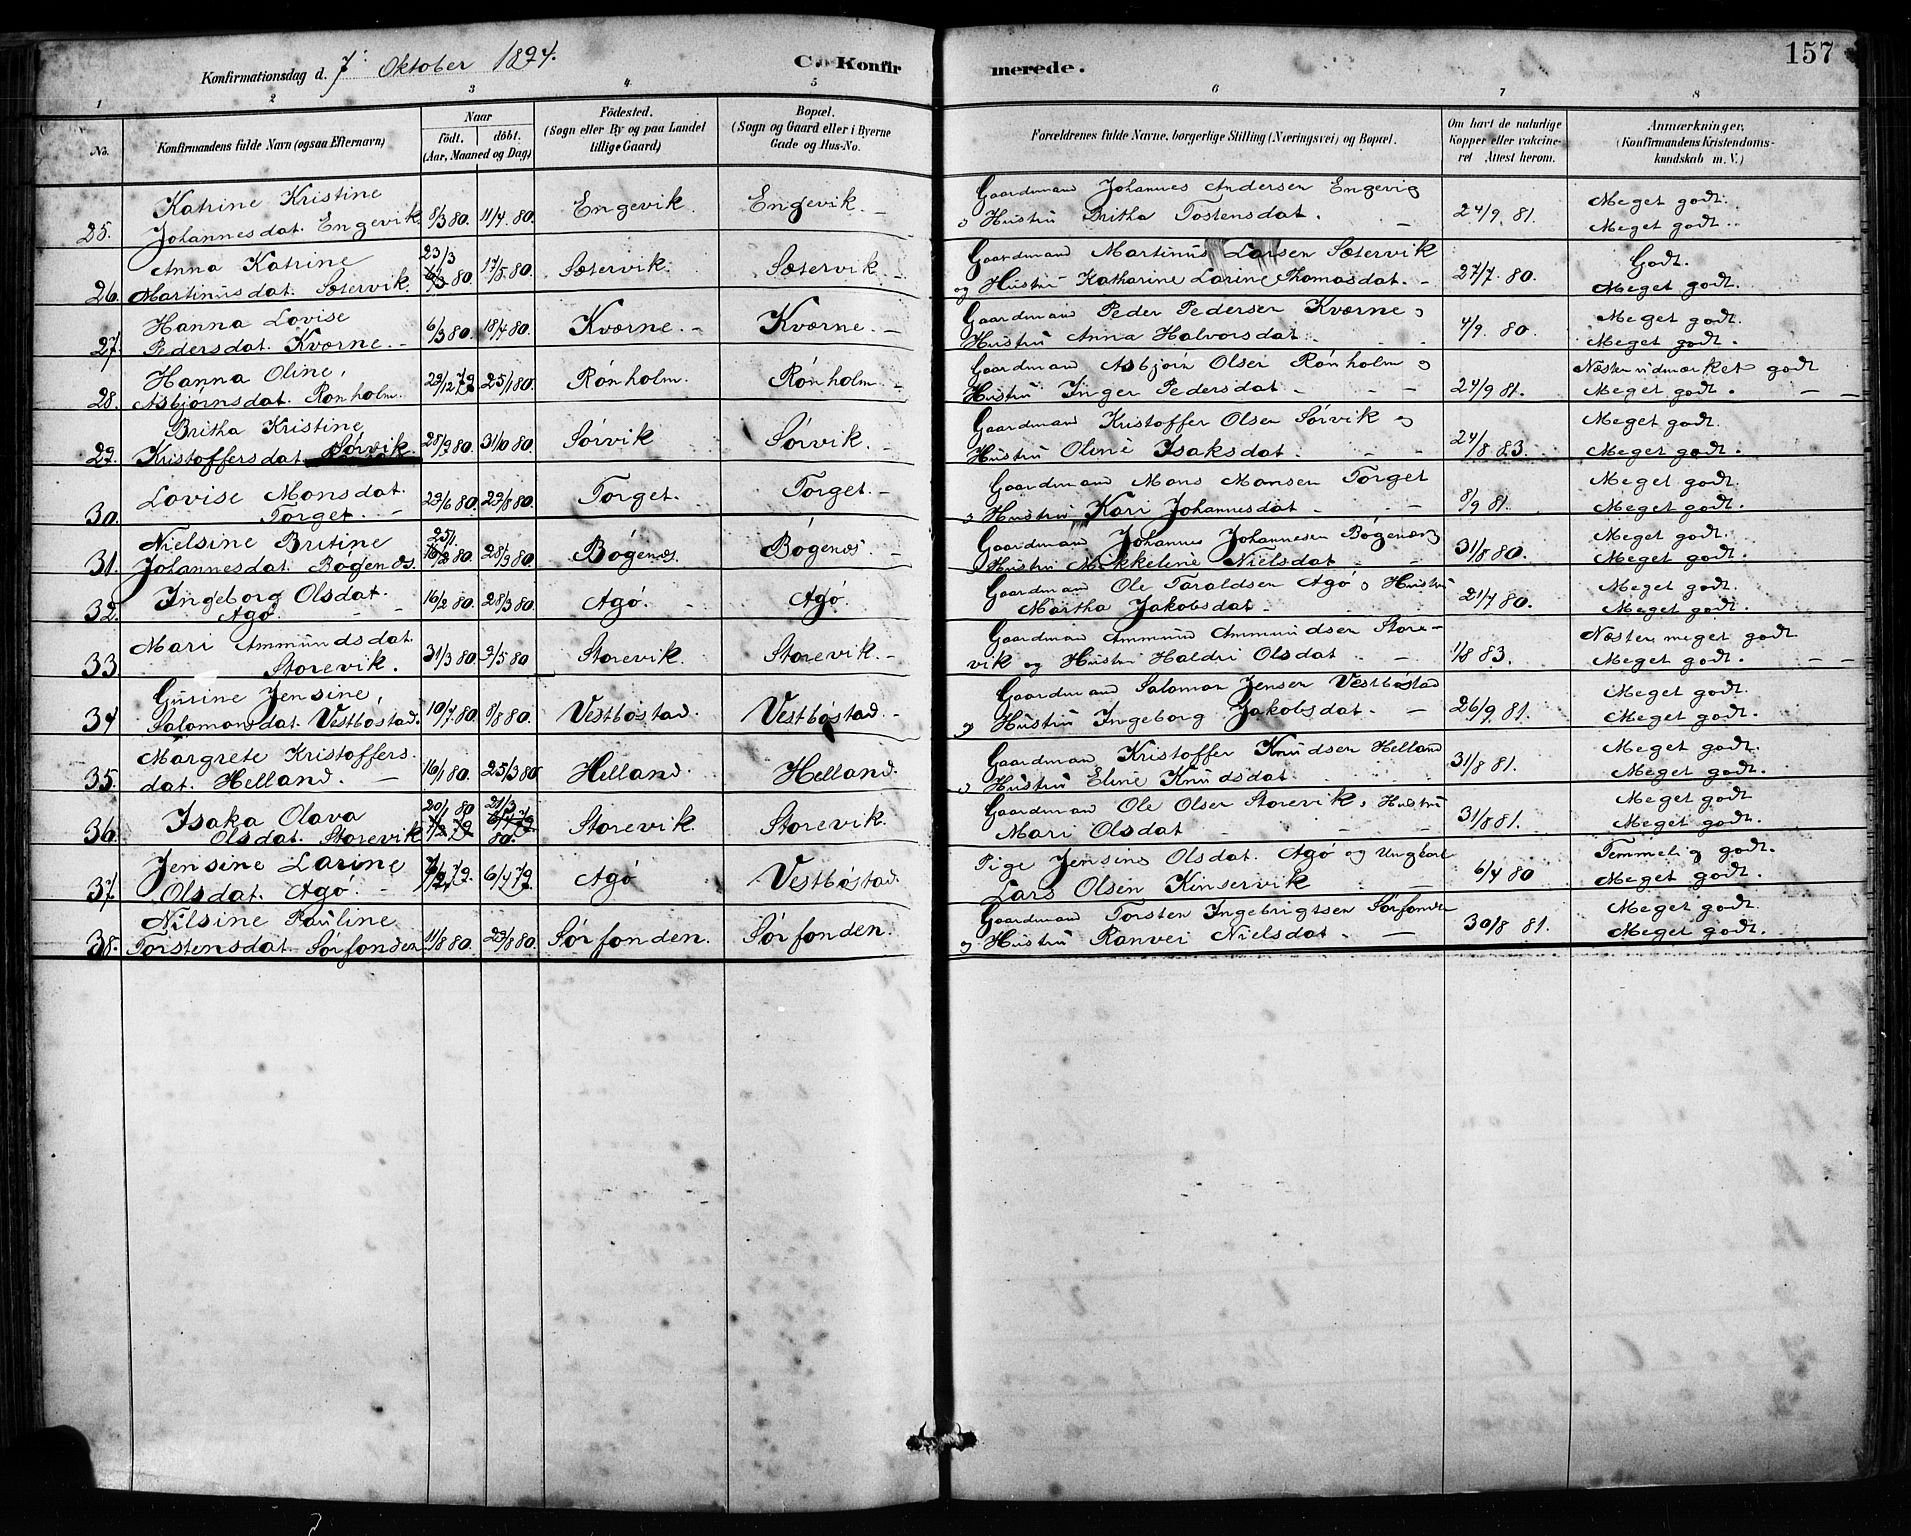 157
Konfirmationsdag d. 7 Oktober 1894. C. Konfirmerede.
1 2 3 4 5 6 7 8
No. Konfirmandens fulde Navn (ogsaa Efternavn) Naar födt. döbt. (Aar, Maaned og Dag) Födested. (Sogn eller By og paa Landet tillige Gaard) Bopæl. (Sogn og Gaard eller i Byerne Gade og Hus-No. Forældrenes fulde Navne, borgerlige Stilling (Næringsvei) og Bopæl. Om havt de naturlige Kopper eller vakcineret Attest herom. Anmærkninger. (Konfirmandens Kristendomskundskab m. V.)
Katrine Kristine Gaardmand Johannes Andersen Engevig Meget godt.
25. Johannesdat. Engevik 9/3 80. 11/4 80. Engevik. Engevik. Hustru Britha Tostensdat. 24/9 81. Meget godt.
Anna Katrine 23/3 Gaardmand Martinus Larsen Sætervik Godt.
26. Martinusdat. Sætervik. 80. 17/5 80. Sætervik. Sætervik. og Hustru Katharine Larine Thomasdat. 27/7 80. Meget godt.
Hanna Lovise Gaardmand Peder Pedersen Kværne Meget godt.
27. Pedersdat. Kværne. 6/3 80. 18/4 80. Kværne. Kværne. Hustru Anna Halvorsdat. 4/9 80. Meget godt.
Hanna Oline Gaardmand Asbjørn Olsen Rønholm Næsten udmærket godt
28. Asbjørnsdat. Rønholm. 29/12 79 25/1 80. Rønholm. Rønholm. Hustru Inger Pedersdat. 24/9 81. Meget godt.
Britha Kristine Gaardmand Kristoffer Olsen Sørvik Meget godt.
29. Kristoffersdat. Sørvik. 28/9 80. 31/10 80. Sørvik Sørvik. Hustru Oline Isaksdat. 24/8 83. Meget godt.
Lovise Monsdat. Gaardmand Mons Monsen Torget Meget godt.
30. Torget. 29/6 80. 29/8 80. Torget. Torget. Hustru Kari Johannesdat 8/9 81. Meget godt.
Nielsine Britine Gaardmand Johannes Johannesen Bøgenæs Meget godt.
31. Johannesdat. Bøgenæs. 80. 28/3 80. Bøgenæs. Bøgenæs. Hustru Mikkeline Nielsdat 31/8 80. Meget godt.
Ingeborg Olsdat. Gaardmand Ole Taraldsen Agø Hustru Meget godt.
32. Agø. 16/2 80. 28/3 80. Agø. Agø. Martha Jakobsdat. 21/7 80. Meget godt.
Mari Ammundsdat. Gaardmand Ammund Ammundsen Store- Næsten meget godt
33 Storevik. 31/3 80. 9/5 80 Storevik. Storevik. vik og Hustru Haldri Olsdat 1/8 83. Meget godt.
Gurine Jensine Gaardmand Salomon Jensen Vestbøstad Meget godt.
34 Salomonsdat. Vestbøstad. 10/7 80. 8/8 80. Vestbøstad. Vestbøstad. Hustru Ingeborg Jakobsdat. 26/9 81. Meget godt.
Margrete Kristoffers Gaardmand Kristoffer Knudsen Helland Meget godt.
35. dat. Helland. 16/1 80. 25/3 80. Helland. Helland. Hustru Eline Knudsdat. 31/8 81. Meget godt.
Isaka Olava 20/1 80. 21/3 Gaardmand Ole Olsen Storevik, Hustru Meget godt
36. Olsdat. Storevik 80. Storevik. Storevik. Mari Olsdat 31/8 81. Meget godt.
Jensine Larine Pige Jensine Olsdat. Agø og Ungkarl Temmelig godt.
37. Olsdat. Agø 79. 6/4 79. Agø Vestbøstad. Lars Olsen Kinservik 6/4 80 Meget godt.
Nilsine Pauline Gaardmand Torsten Ingebrigtsen Sørfonden Meget godt.
38. Torstensdat. Sørfonden 11/8 80. 29/8 80. Sørfonden. Sørfonden. Hustru Ranvei Nielsdat. 30/8 81. Meget godt.